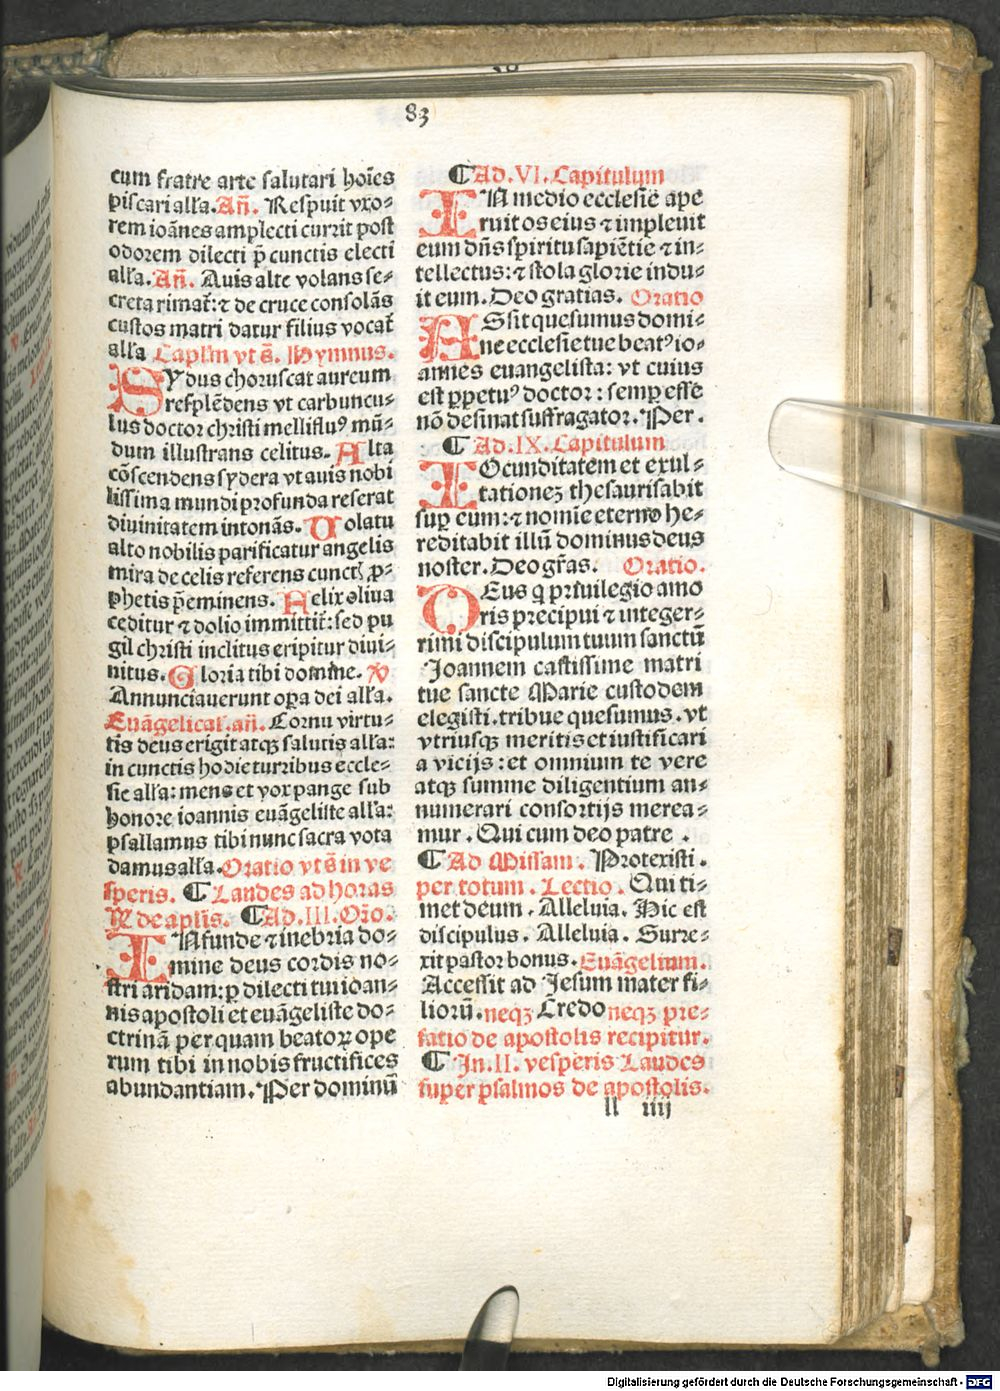 83
cum fratre arte salutari hoīes
piscari all'a. Añ. Respuit vxo⸗
rem ioānes amplecti currit post
odorem dilecti p̄ cunctis electi
all'a. Añ. Auis alte volans se⸗
creta rimat̄: ⁊ de cruce consolās
custos matri datur filius vocat̄
all'a Capl'm vt s̄. Hymnus.
SYdus choruscat aureum
resplēdens vt carbuncu⸗
lus doctor christi mellifluꝰ mū⸗
dum illustrans celitus. Alta
cōscendens sydera vt auis nobi
lissima mundi profunda reserat
diuinitatem intonās. Volatu
alto nobilis parificatur angelis
mira de celis referens cunctꝭ ꝓ⸗
phetis p̄eminens. Felix oliua
ceditur ⁊ dolio immittit̄: sed pu
gil christi inclitus eripitur diui⸗
nitus. Gloria tibi domine. ℣
Annunciauerunt oꝑa dei all'a.
Euāgelical. añ. Cornu virtu⸗
tis deus erigit atqꝫ salutis all'a:
in cunctis hodie turribus eccle⸗
sie all'a: mens et vox pange sub
honore ioannis euāgeliste all'a:
psallamus tibi nunc sacra vota
damus all'a. Oratio vt s̄ in ve
speris. ¶ Laudes ad horas
℟ de apl'is. ¶ Ad. III. Oꝛ̄o.
INfunde ⁊ inebria do⸗
mine deus cordis no⸗
stri aridam: ꝑ dilecti tui ioan⸗
nis apostoli et euāgeliste do⸗
ctrinā per quam beatoꝝ ope
rum tibi in nobis fructifices
abundantiam. Per dominū
¶ Ad. VI. Capitulum
IN medio ecclesie ape
ruit os eius ⁊ impleuit
eum dn̄s spiritu sapiētie ⁊ in⸗
tellectus: ⁊ stola glorie indu⸗
it eum. Deo gratias. Oratio
ASsit quesumus domi⸗
ne ecclesie tue beatꝰ io⸗
annes euangelista: vt cuius
est ꝑpetuꝰ doctor: semꝑ esse
nō desinat suffragator. Per.
¶ Ad. IX. Capitulum
IOcunditatem et exul⸗
tationeꝫ thesaurisabit
suꝑ eum: ⁊ nomīe eterno he⸗
reditabit illū dominus deus
noster. Deo gr̄as. Oratio.
DEus q priuilegio amo
ris precipui ⁊ integer⸗
rimi discipulum tuum sanctū
Joannem castissime matri
tue sancte Marie custodem
elegisti. tribue quesumus. vt
vtriusqꝫ meritis et iustificari
a vicijs: et omnium te vere
atqꝫ summe diligentium an⸗
numerari consortijs merea⸗
mur. Qui cum deo patre.
¶ Ad Missam. Protexisti.
per totum. Lectio. Qui ti⸗
met deum. Alleluia. Hic est
discipulus. Alleluia. Surre⸗
xit pastor bonus. Euāgelium.
Accessit ad Jesum mater fi⸗
liorū. neqꝫ Credo neqꝫ pre⸗
fatio de apostolis recipitur.
¶ In. II. vesperis Laudes
super psalmos de apostolis.
ll iiij
Digitalisierung gefördert durch die Deutsche Forschungsgemeinschaft - DFG